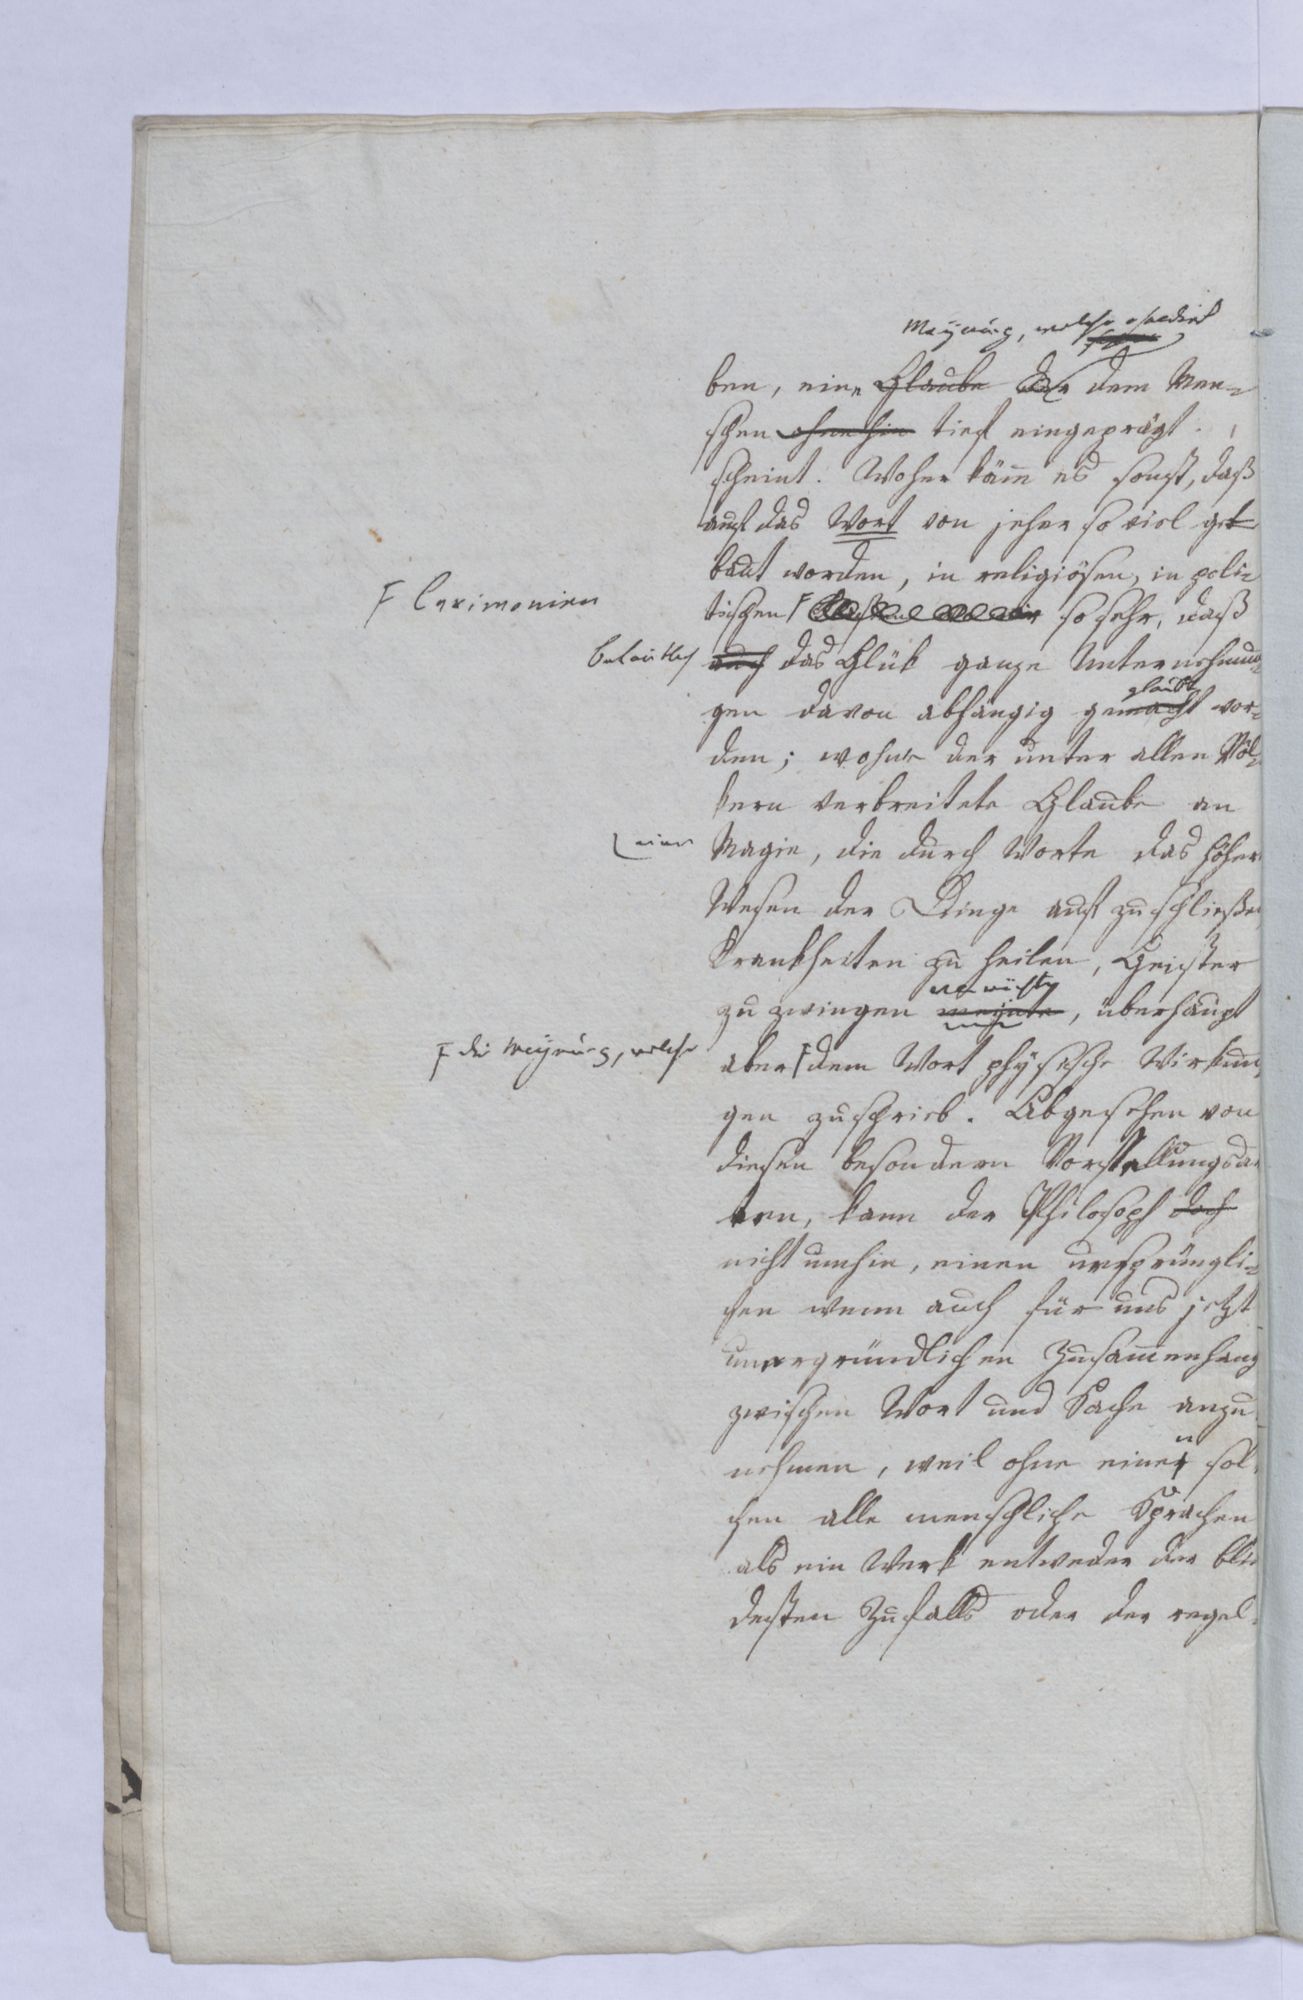 Meynung, welche ohnedieß
ben, eine Glaube der dem Men-
schen ohnehin tief eingeprägt
scheint. Woher käm es sonst, daß
auf das Wort von jeher so viel ge-
baut worden, in religiösen, in poli-
F Cärimonien
tischen F so sehr, daß
auch das Glük ganze Unternehmun-
glaubt
gen davon abhängig gemacht wor-
den; woher der unter allen Völ-
kern verbreitete Glaube an
einer
Magie, die durch Worte das höhere
Wesen der Dinge aufzuschließen
Krankheiten zu heilen, Geister
zu zwingen meynte, überhaupt
F die Meynung, welche
aber F dem Wort physische Wirkun-
gen zuschrieb. Abgesehen von
diesen besondern Vorstellungsar-
ten, kann der Philosoph doch
nicht umhin, einen ursprüngli-
chen wenn auch für uns jetzt
unergründlichen Zusammenhang
zwischen Wort und Sache anzu-
n
nehmen, weil ohne einen sol-
chen alle menschliche Sprachen
als ein Werk entweder des blin-
desten Zufalls oder der regel-